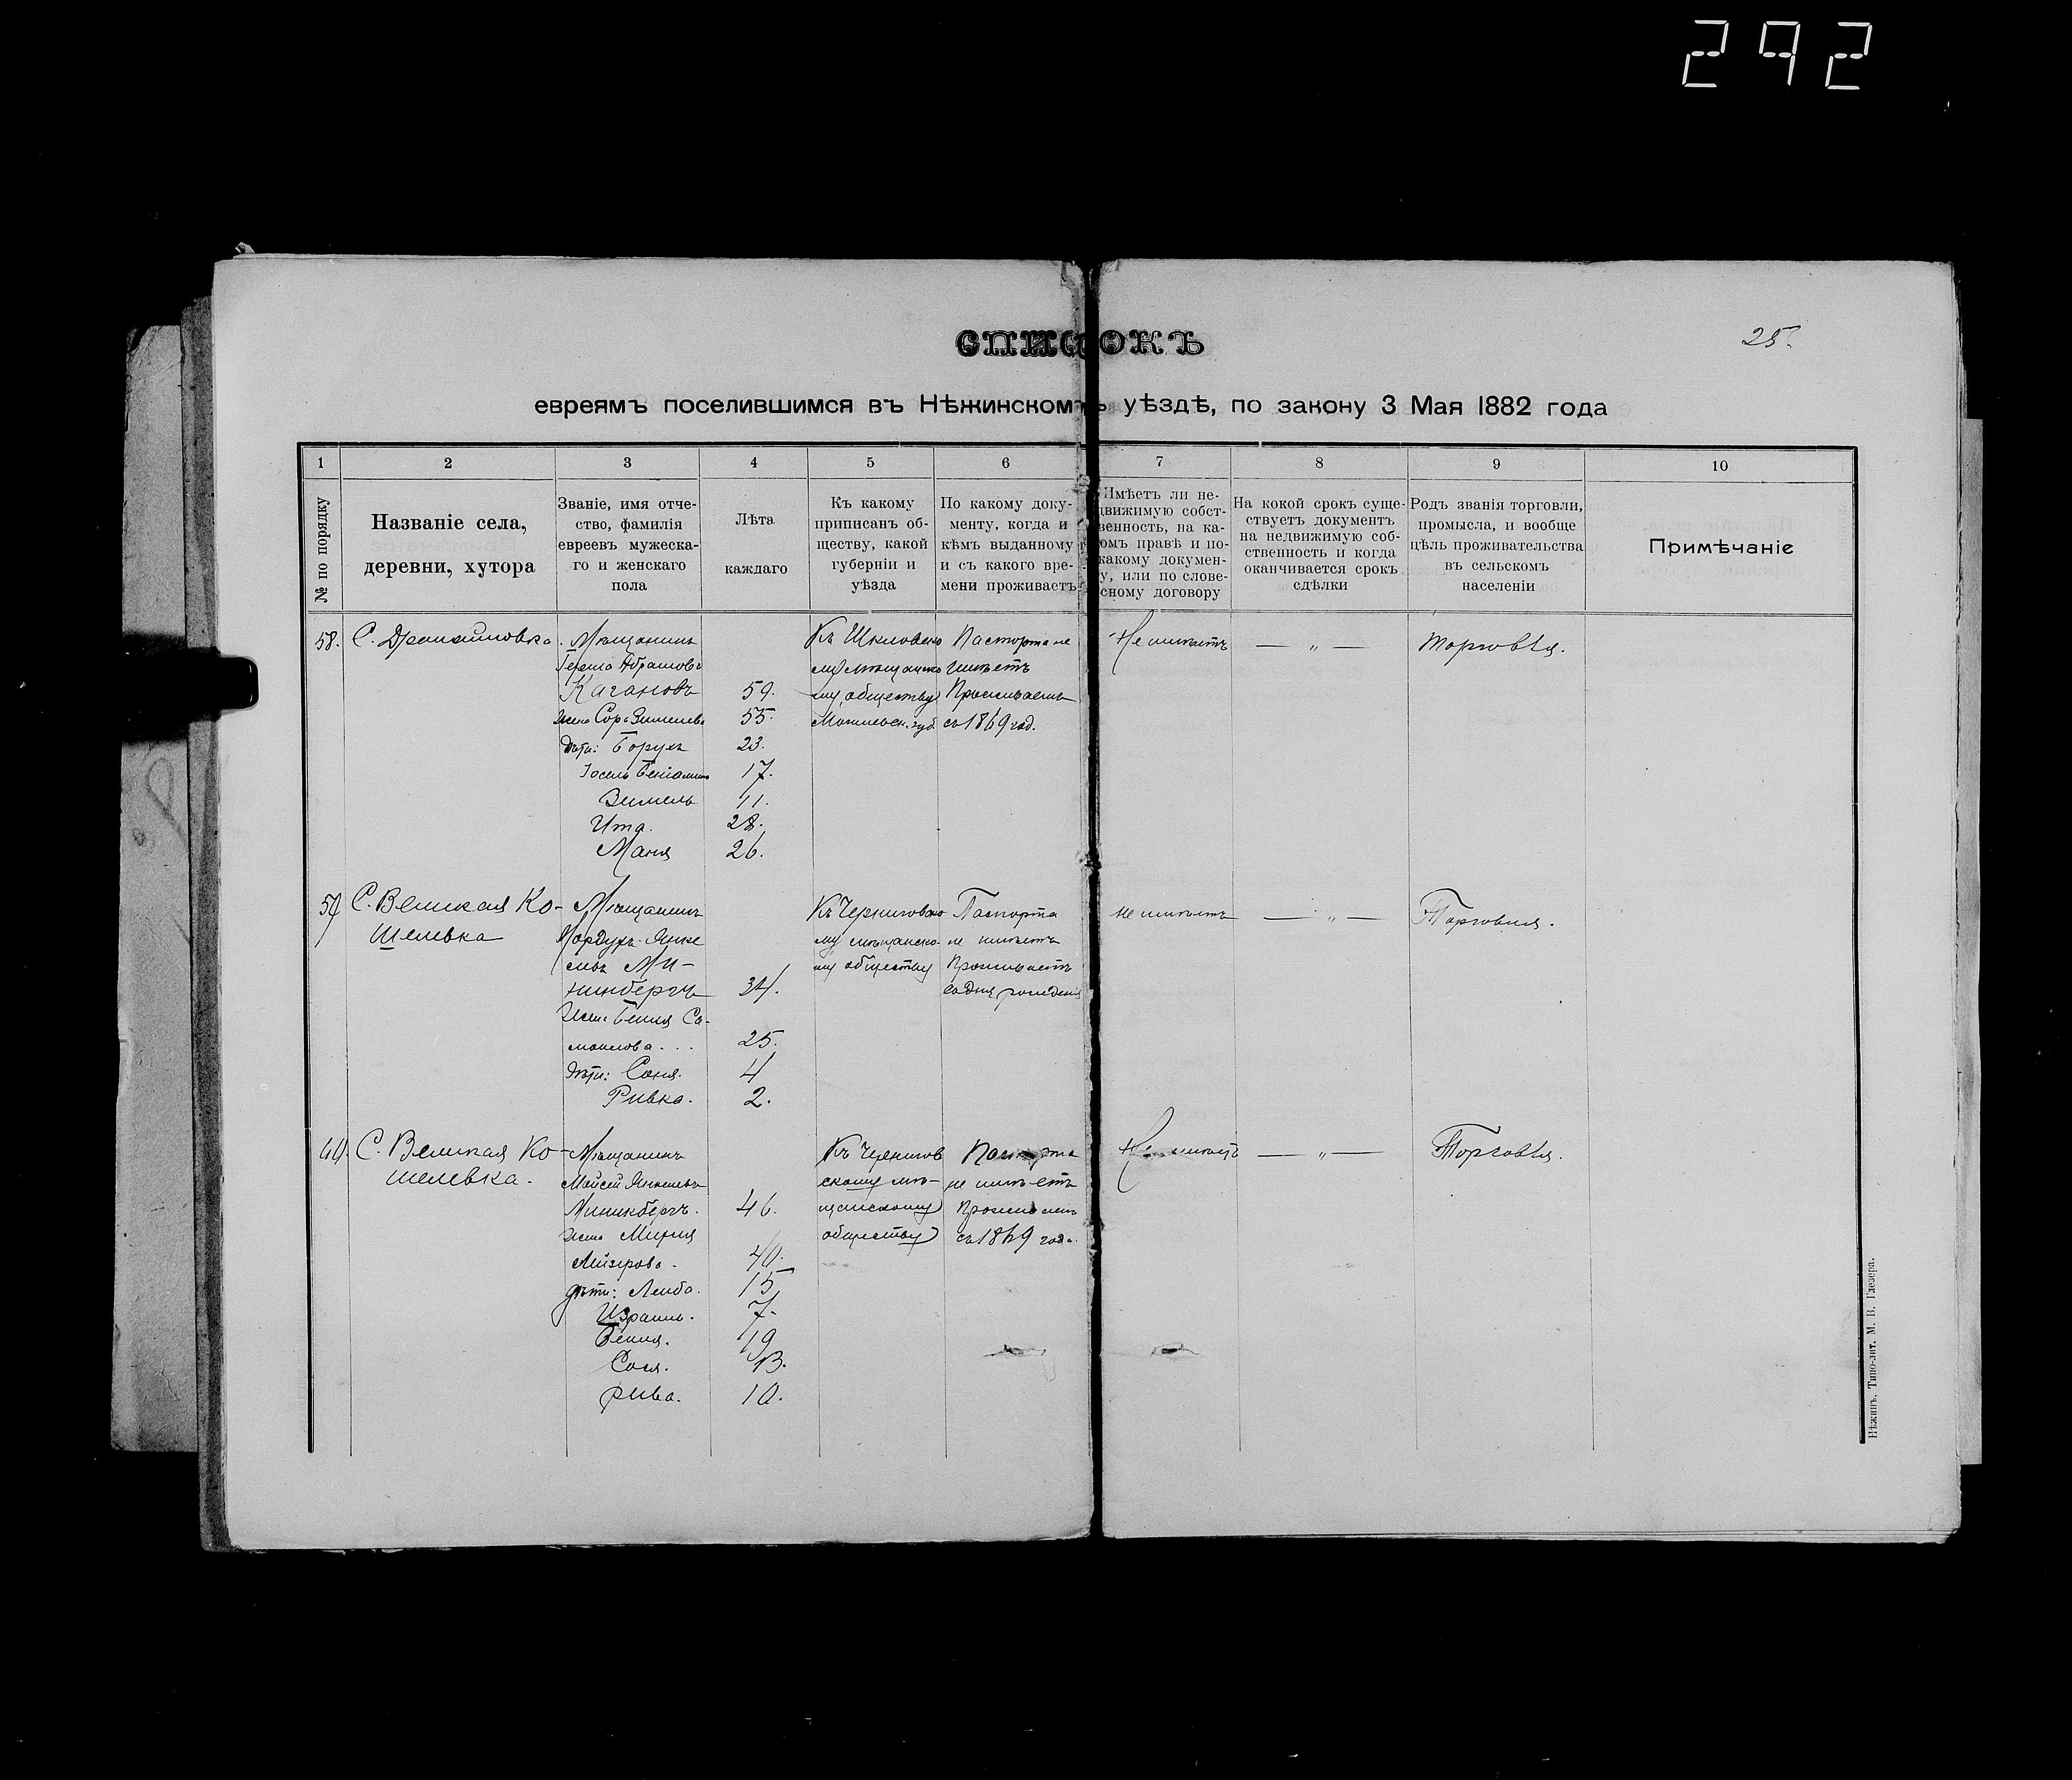 292
25.
СПИСОКЪ
евреямъ поселившимся въ Нѣжинскомъ уѣздѣ, по закону 3 Мая 1882 года
1 2 3 4 5 6 7 8 9 10
№ по порядку
Названіе села,
деревни, хутора
Званіе, имя отче-
ство, фамилія
евреевъ мужеска-
го и женскаго
пола
Лѣта
каждаго
Къ какому
приписанъ об-
ществу, какой
губерніи и
уѣзда
По какому доку-
менту, когда и
кѣмъ выданному
и съ какого вре-
мени проживаетъ
Имѣетъ ли не-
движимую собст-
венность, на ка-
омъ правѣ и по-
какому докумен-
у, или по слове-
сному договору
На кокой срокъ суще-
ствуетъ документъ
на недвижимую соб-
ственность и когда
оканчивается срокъ
сдѣлки
Родъ званія торговли,
промысла, и вообще
цѣль проживательства
въ сельскомъ
населеніи
Примѣчаніе
58.
Мѣщанинъ
Герша Абрамовъ
Кагановъ 59.
жена Сора Зимелева 55.
дѣти: Борухъ 23.
Іосель Беніаминъ 17.
Зимель 11.
Ита. 28.
Маня 26.
Къ Шкловско
му мѣщанско
му обществу
Могилевск. губ.
Паспорта не
имѣетъ
Проживаетъ
съ 1869 год.
Не имѣетъ
— „ —
Торговля.
59
С. Великая Ко-
шелевка
Мѣщанинъ
Мордухъ Янке
левъ Ми-
нинбергъ 34.
Жена Бейля Са-
мойлова . . . 25.
дѣти: Соня. 4
Ривка. 2.
Къ Черниговско
му мѣщанско-
му обществу
Паспорта
не имѣетъ
Проживаетъ
со дня рожденія
не имѣетъ
— „ —
Торговля.
С. Великая Ко-
шелевка.
Мѣщанинъ
Мойсей Янкелевъ
Мининбергъ. 46.
жена Мирля
Лейзерова. 40.
дѣти: Лейба. 15
Израиль. 7.
Бейля. 19
Сося.
Рива. 10.
Къ Чернигов
скому мѣ-
щанскому
обществу
Паспорта
не имѣетъ
Проживаетъ
съ 1869 года.
Не имѣетъ
— „ —
Торговля.
Нѣжинъ. Типо-лит. М. В. Глезера.